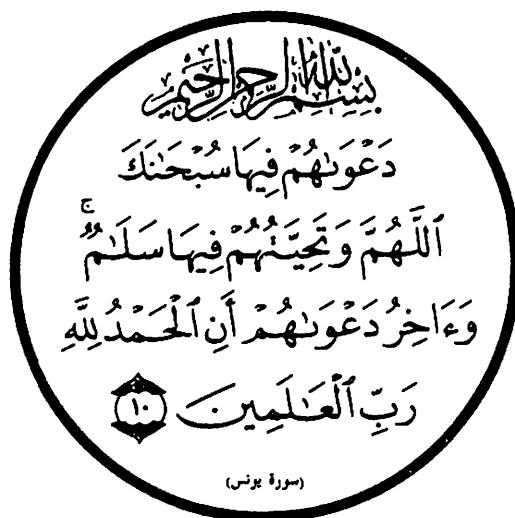 بِسْمِ اللَّهِ الرَّحْمَٰنِ الرَّحِيمِ
دَعْوَىٰهُمْ فِيهَا سُبْحَٰنَكَ
اللَّهُمَّ وَتَحِيَّتُهُمْ فِيهَا سَلَٰمٌ ۚ
وَءَاخِرُ دَعْوَىٰهُمْ أَنِ ٱلْحَمْدُ لِلَّهِ
رَبِّ ٱلْعَٰلَمِينَ ﴿١٠﴾
(سورة يونس)